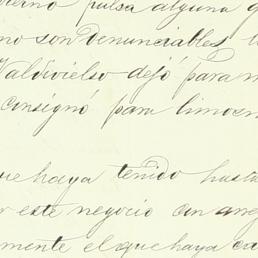 pulsa alguna
no son denunciables
Valdivielso dejó para
consignó para limosn
que haya tenido hasta
este negocio con
mente el que haya ca